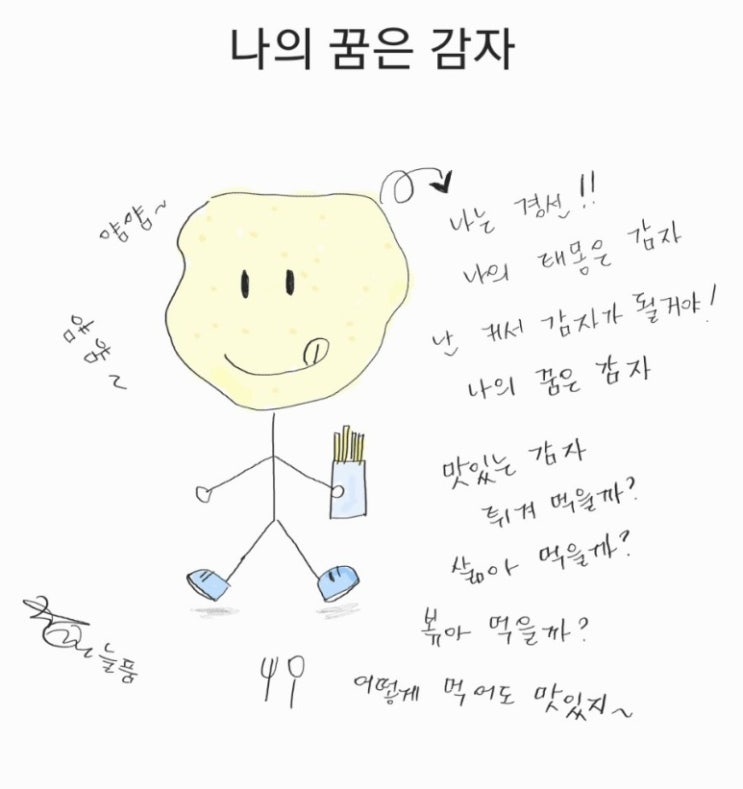 나의 꿈은 감자
얌얌~
얌얌~
나는 경선!!
나의 태몽은 감자
난 커서 감자가 될거야!
나의 꿈은 감자
맛있는 감자
튀겨 먹을까?
삶아 먹을까?
볶아 먹을까?
어떻게 먹어도 맛있지~
늘품